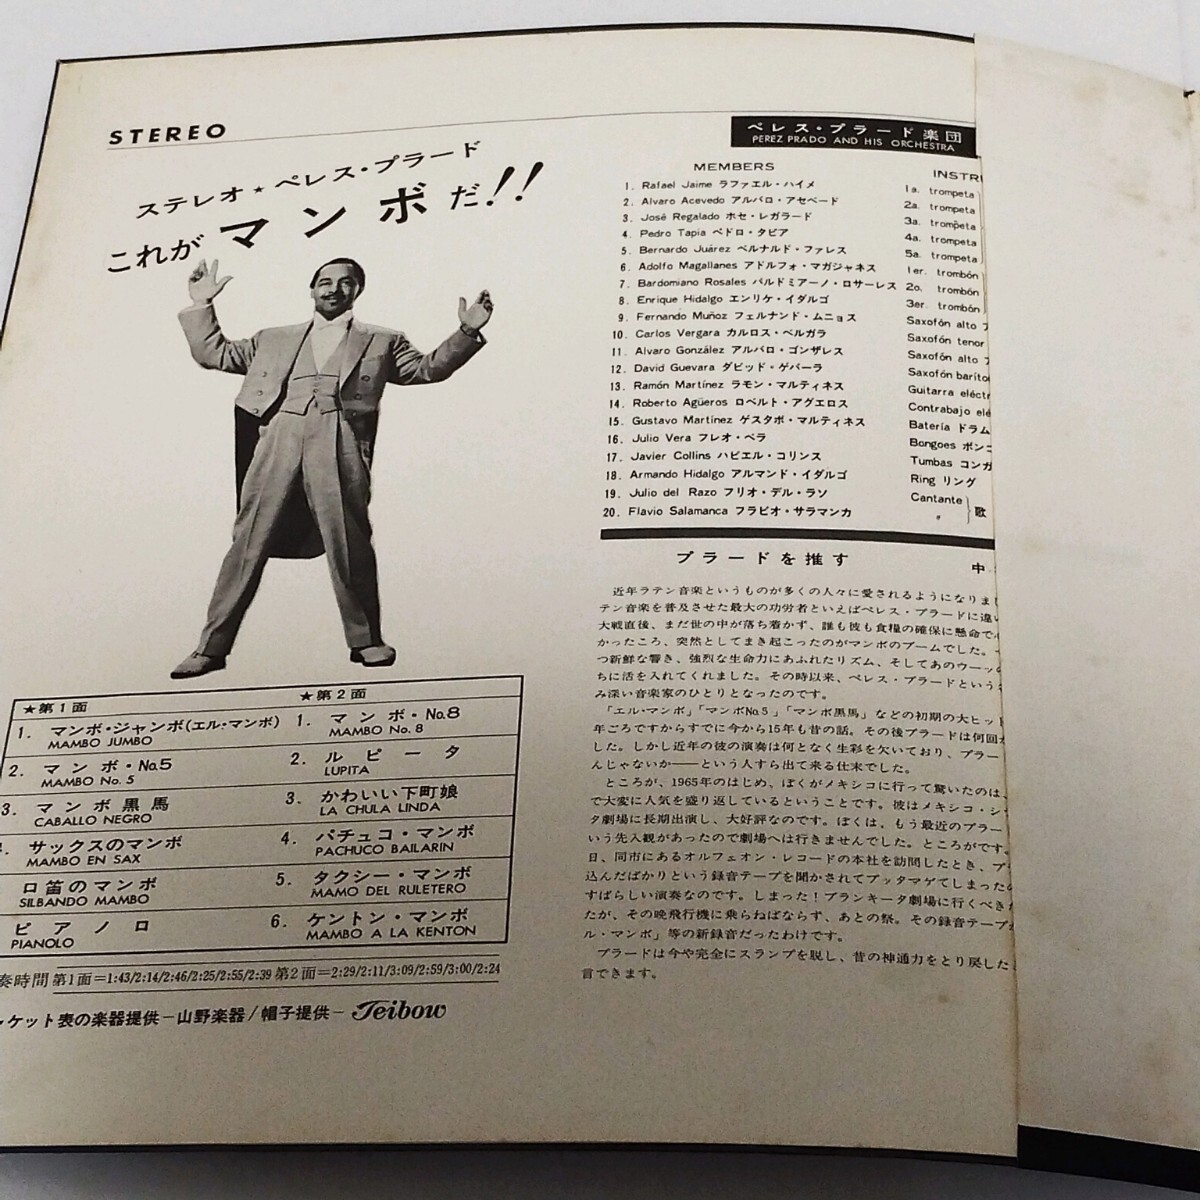 STEREO
ステレオ★ペレス・プラード
これが マンボだ!!
ペレス・プラード楽団
PEREZ PRADO AND HIS ORCHESTRA
MEMBERS
1. Rafael Jaime ラファエル・ハイメ
2. Alvaro Acevedo アルバロ・アセベード
3. José Regalado ホセ・レガラード
4. Pedro Tapia ペドロ・タピア
5. Bernardo Juárez ベルナルド・ファレス
6. Adolfo Magallanes アドルフォ・マガジャネス
7. Bardomiano Rosales バルドミアーノ・ロサーレス
8. Enrique Hidalgo エンリケ・イダルゴ
9. Fernando Muñoz フェルナンド・ムニョス
10. Carlos Vergara カルロス・ベルガラ
11. Alvaro González アルバロ・ゴンザレス
12. David Guevara ダビッド・ゲバーラ
13. Ramón Martínez ラモン・マルティネス
14. Roberto Agüeros ロベルト・アグエロス
15. Gustavo Martínez ゲスタボ・マルティネス
16. Julio Vera フレオ・ベラ
17. Javier Collins ハビエル・コリンス
18. Armando Hidalgo アルマンド・イダルゴ
19. Julio del Razo フリオ・デル・ラソ
20. Flavio Salamanca フラビオ・サラマンカ
INSTRU
1a. trompeta
2a. trompeta
3a. trompeta
4a. trompeta
5a. trompeta
1er. trombón
2o. trombón
3er. trombón
Saxofón alto
Saxofón tenor
Saxofón alto
Saxofón baríto
Guitarra eléctr
Contrabajo elé
Batería ドラム
Bongoes ボンゴ
Tumbas コンガ
Ring リング
Cantante
〃 歌
プラードを推す
中
近年ラテン音楽というものが多くの人々に愛されるようになりまし
テン音楽を普及させた最大の功労者といえばペレス・プラードに違い
大戦直後、まだ世の中が落ち着かず、誰も彼も食糧の確保に懸命で
かったころ、突然としてまき起こったのがマンボのブームでした。
つ新鮮な響き、強烈な生命力にあふれたリズム、そしてあのウーッ
ちに活を入れてくれました。その時以来、ペレス・プラードという
み深い音楽家のひとりとなったのです。
「エル・マンボ」「マンボNo.5」「マンボ黒馬」などの初期の大ヒット
年ごろですからすでに今から15年も昔の話。その後プラードは何回
した。しかし近年の彼の演奏は何となく生彩を欠いており、プラー
んじゃないか――という人すら出て来る仕末でした。
ところが、1965年のはじめ、ぼくがメキシコに行って驚いたのは、
で大変に人気を盛り返しているということです。彼はメキシコ・シ
タ劇場に長期出演し、大好評なのです。ぼくは、もう最近のプラー
いう先入観があったので劇場へは行きませんでした。ところがです。
日、同市にあるオルフェオン・レコードの本社を訪問したとき、プ
込んだばかりという録音テープを聞かされてブッタマゲてしまった
すばらしい演奏なのです。しまった！ブランキータ劇場に行くべき
たが、その晩飛行機に乗らねばならず、あとの祭。その録音テープ
ル・マンボ」等の新録音だったわけです。
プラードは今や完全にスランプを脱し、昔の神通力をとり戻した
言できます。
★第1面
1. マンボ・ジャンボ(エル・マンボ)
MAMBO JUMBO
2. マンボ・No.5
MAMBO No. 5
3. マンボ黒馬
CABALLO NEGRO
4. サックスのマンボ
MAMBO EN SAX
口笛のマンボ
SILBANDO MAMBO
ピアノロ
PIANOLO
★第2面
1. マンボ・No.8
MAMBO No. 8
2. ルピータ
LUPITA
3. かわいい下町娘
LA CHULA LINDA
4. パチュコ・マンボ
PACHUCO BAILARIN
5. タクシー・マンボ
MAMO DEL RULETERO
6. ケントン・マンボ
MAMBO A LA KENTON
奏時間 第1面=1:43/2:14/2:46/2:25/2:55/2:39 第2面=2:29/2:11/3:09/2:59/3:00/2:24
ャケット表の楽器提供－山野楽器/帽子提供－Teibow